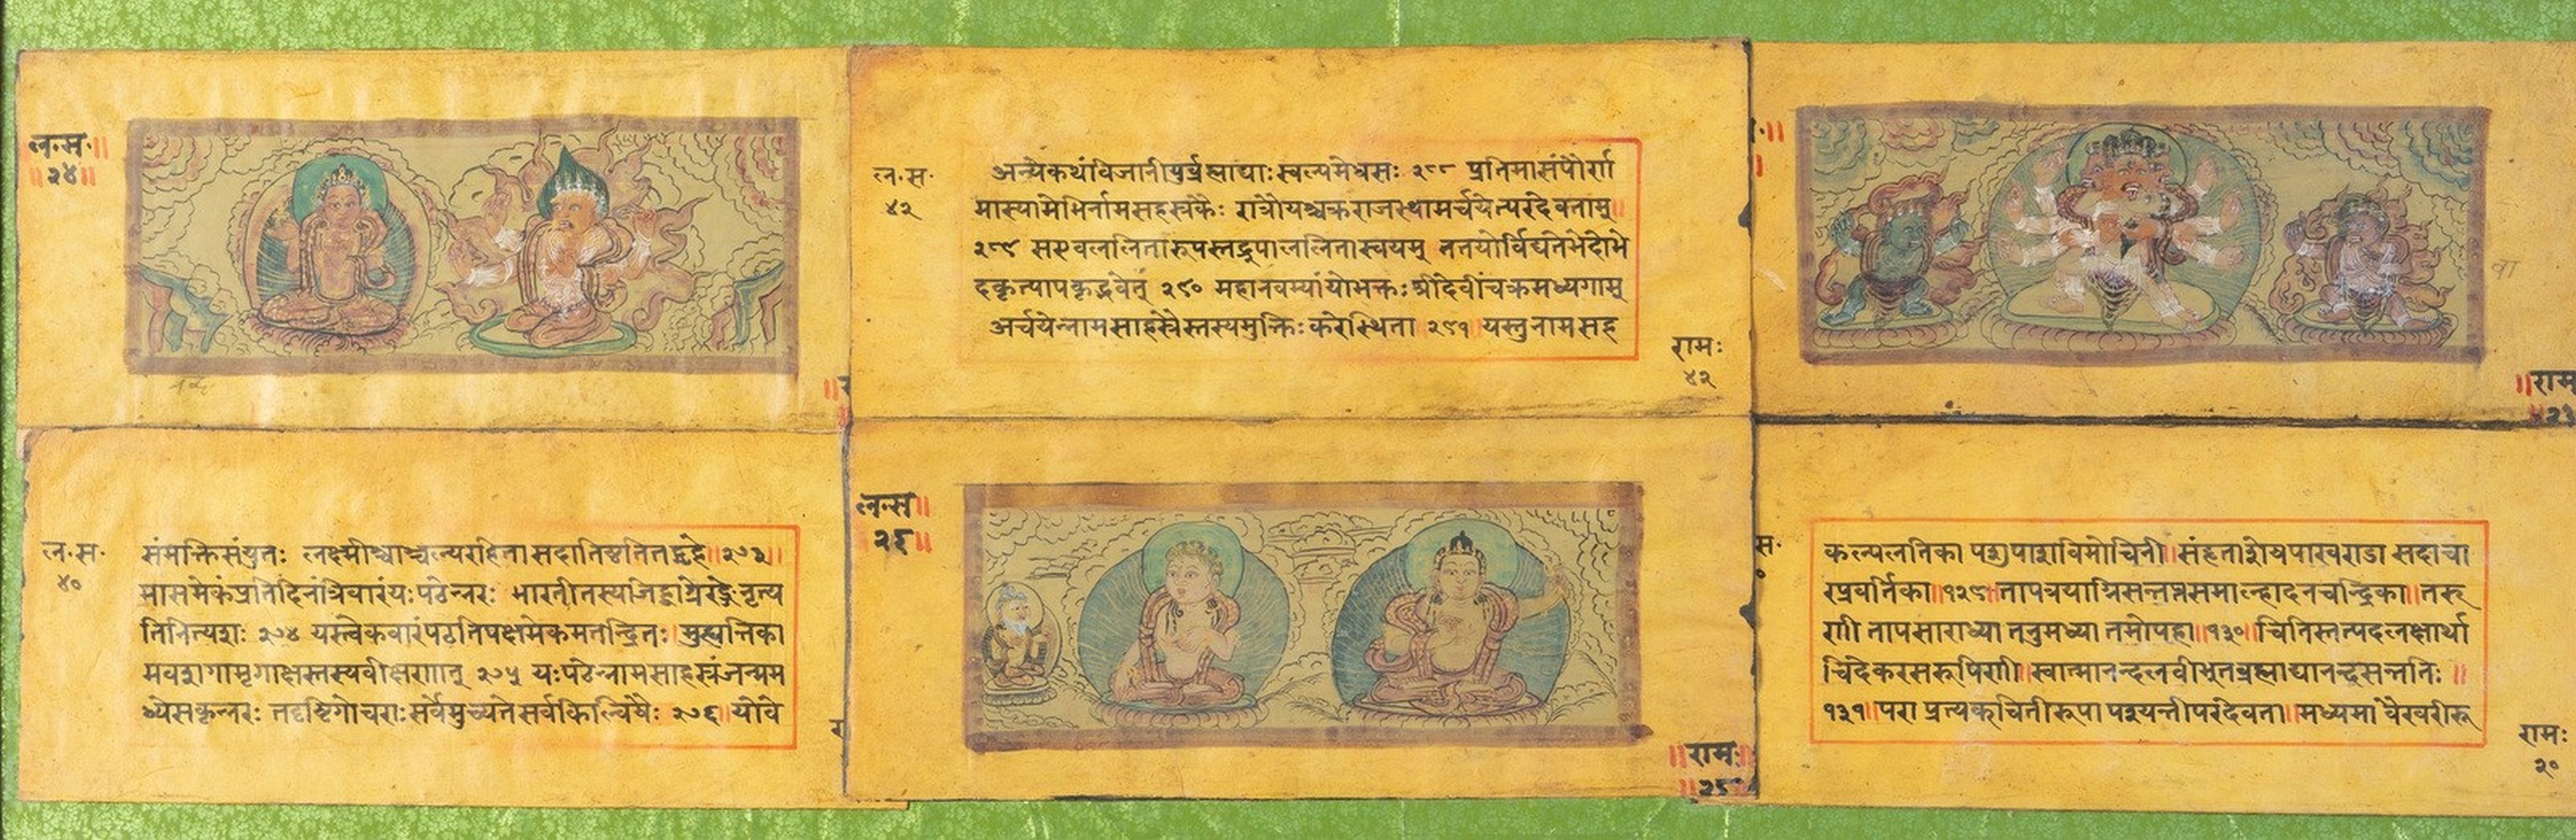 ल॰स॰॥
॥२४॥
ल॰स॰
४२
अन्येकथंविजानीयुर्ब्रह्माद्याःस्वल्पमेधसः २८८ प्रतिमासंपौर्णा
मास्यामेभिर्नामसहस्त्रकैः रात्रौयश्चक्रराजस्थामर्चयेत्परदेवताम्॥
२८९ सएवललितारूपस्तद्रूपाललितास्वयम् नतयोर्विद्यतेभेदोभे
दकृत्पापकृद्भवेत् २९० महानवम्यांयोभक्तःश्रीदेवींचक्रमध्यगाम्
अर्चयेन्नामसाहस्त्रैस्तस्यमुक्तिःकरेस्थिता २९१ यस्तुनामसह
रामः
४२
॥राम
ल॰स॰
४०
संभक्तिसंयुतः लक्ष्मीश्चाञ्चल्यरहिता सदातिष्ठतितद्गृहे॥२७३॥
मासमेकंप्रतिदिनंत्रिवारंयःपठेन्नरः भारतीतस्यजिह्वाग्रेरङ्गेनृत्य
तिनित्यशः २७४ यस्त्वेकवारंपठतिपक्षमेकमतन्द्रितः॥मुह्यन्तिका
मवशगामृगाक्षस्तस्यवीक्षणात् २७५ यःपठेन्नामसाहस्त्रंजन्मम
ध्येसकृन्नरः तदृष्टिगोचराःसर्वेमुच्यतेसर्वकिल्विषैः २७६॥योवे
ल॰स॥
२६॥
॥रामः॥
॥२६
स॰
कल्पलतिका पशुपाशविमोचिनी॥संहृताशेषपाखराडा सदाचा
रप्रवर्तिका॥१२९॥तापत्रयाग्निसन्तप्तसमाल्हादनचन्द्रिका॥तरू
णी तापसाराध्या तनुमध्या तमोपहा॥१३०॥चितिस्तत्पदलक्षार्था
चिदेकरसरूपिणी॥स्वात्मानन्दलवीभुतब्रह्माद्यानन्दसन्ततिः॥
१३१॥परा प्रत्यक्चितीरूपा पश्यन्तीपरदेवता॥मध्यमा वैखरीरू
रामः
२०